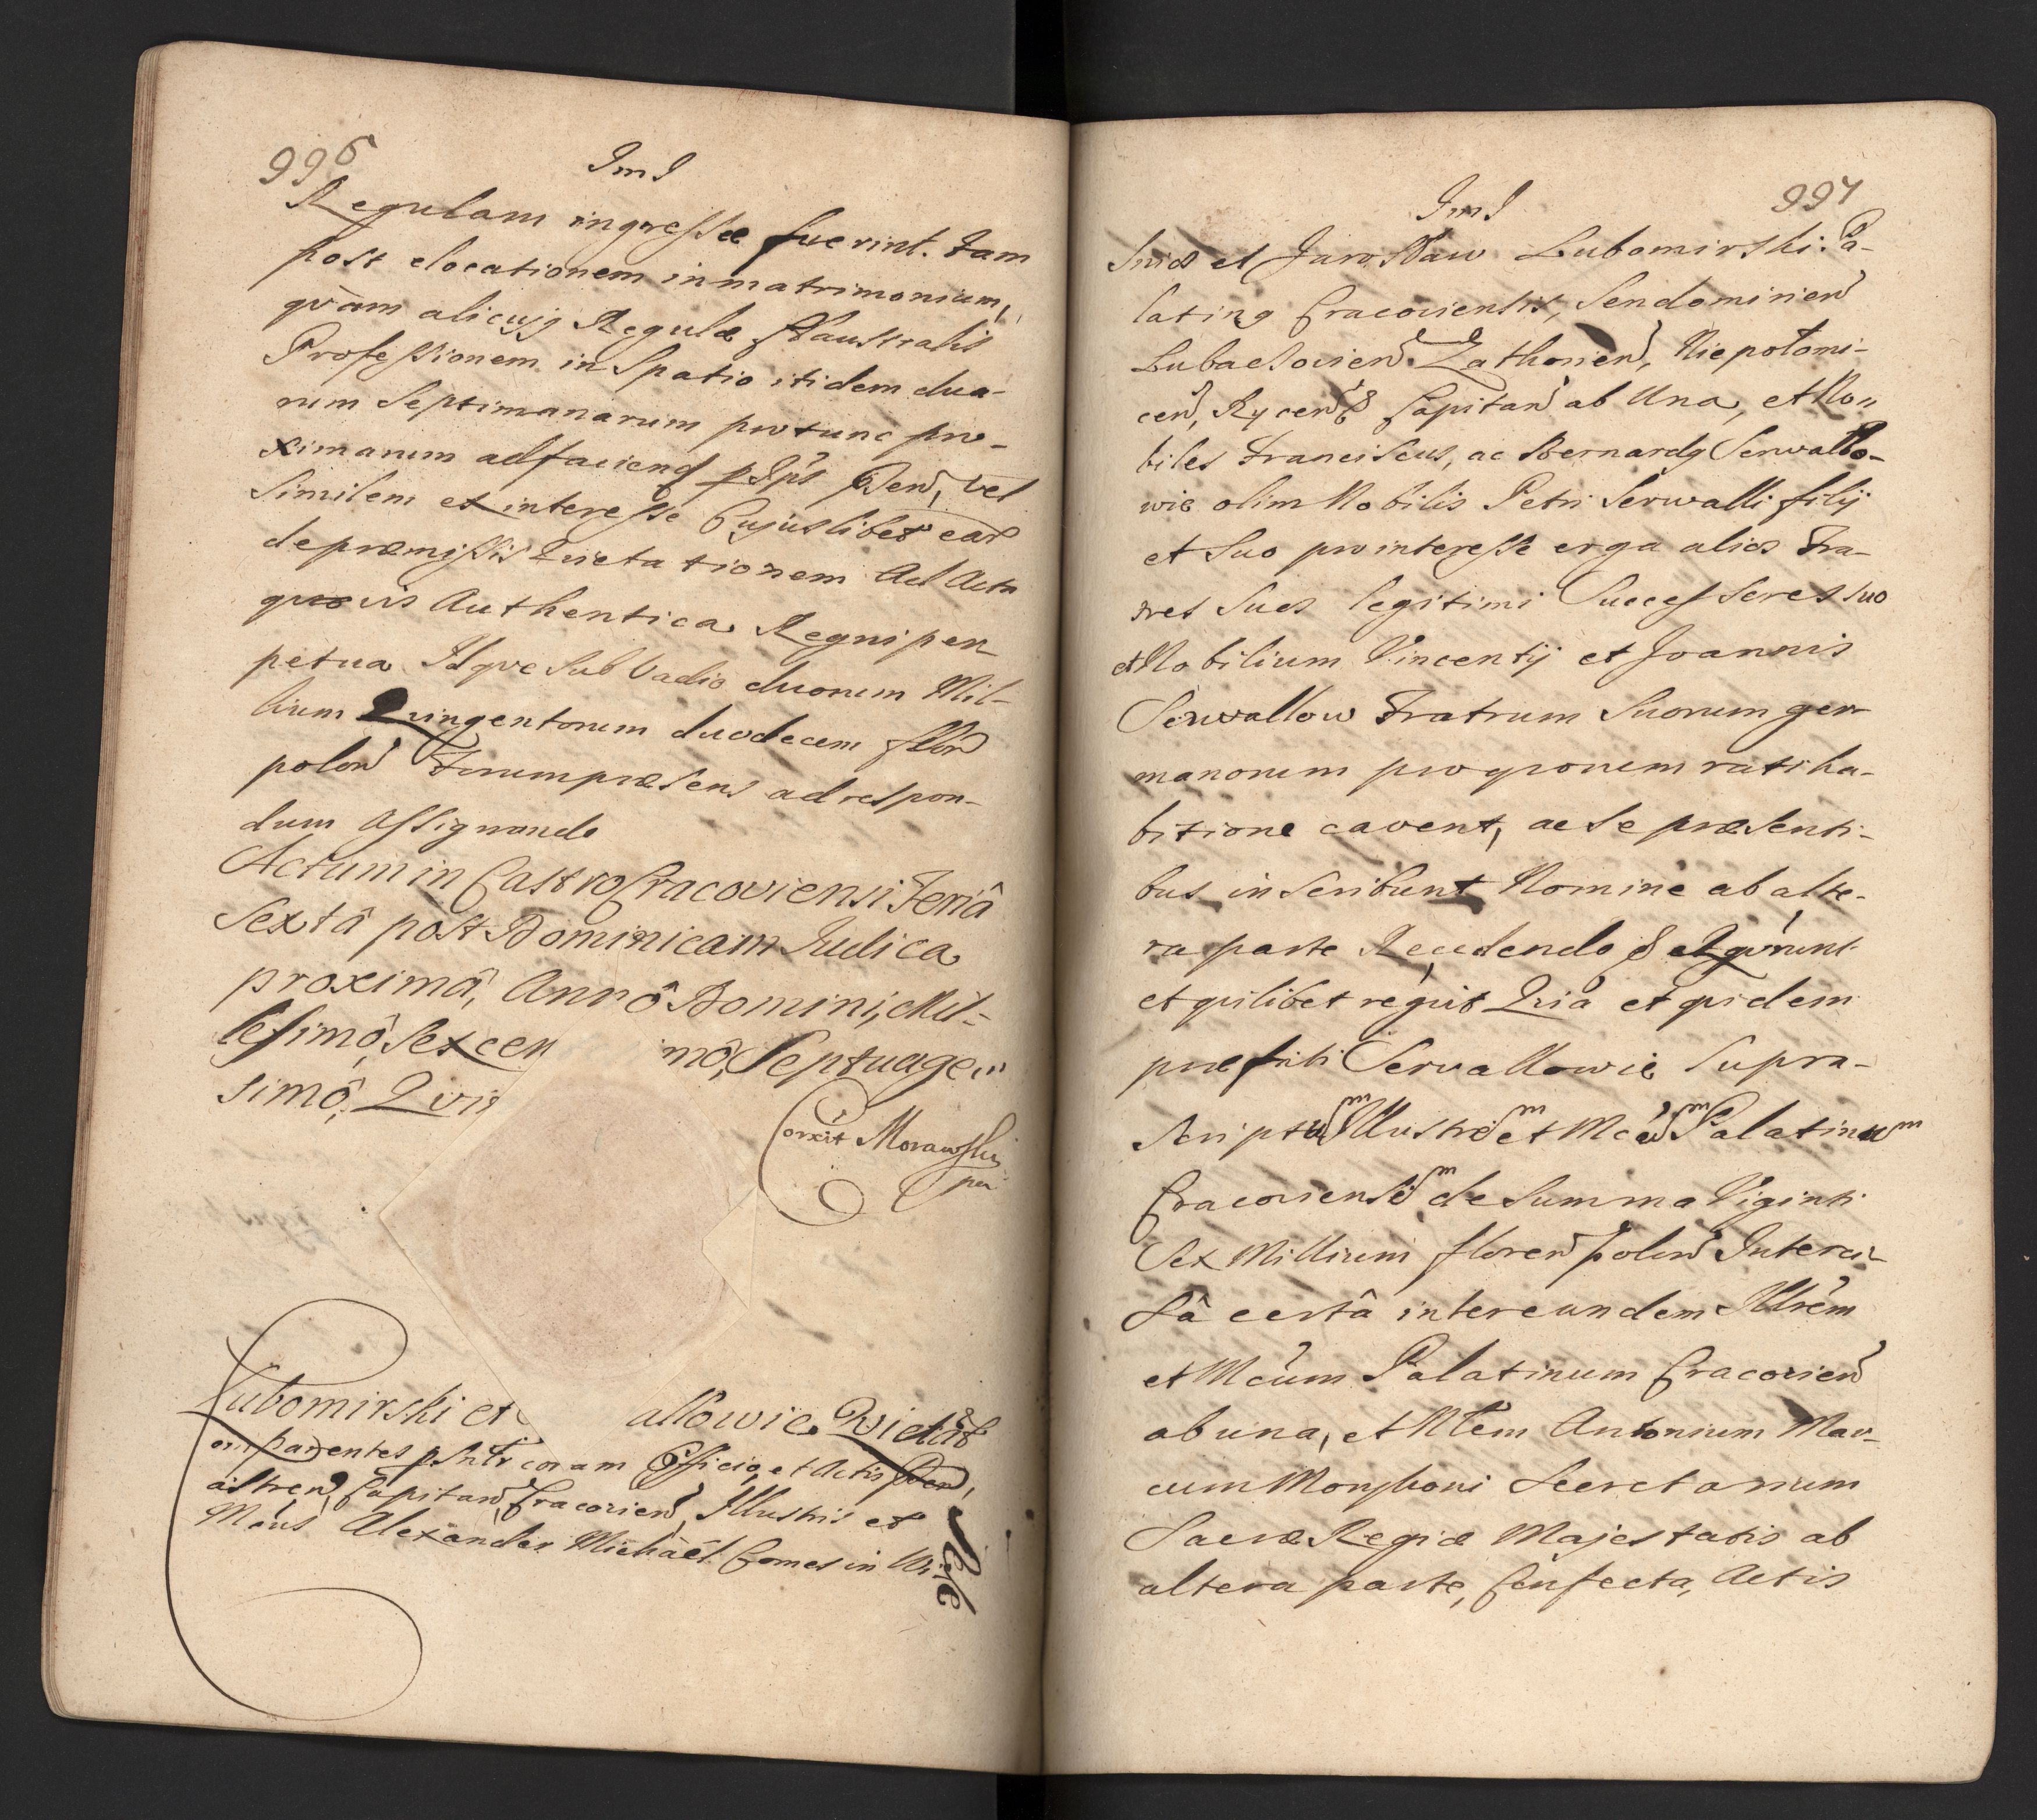 996
ImI
Regulam ingressæ fuerint. Tam
post elocationem in matrimonium,
quàm alicujq Regulæ Claustralis
Professionem in Spatio itidem dua-
rum Septimanarum pro tunc pro-
ximarum ad faciend
Similem et interesse Cujuslibet ear
de præmissis Quietationem Ad Acta
quævis Authentica Regni per
petua Idque Sub Vadio duorum Mil-
lium Quingentorum duodecem flor
polon Forum præsens ad respon-
dum assignando
Actum in Castro Cracoviensi Feriâ
Sextâ post Dominicam Iudica
proximâ, Annô Domini, Mil-
lesimô, Sexcen mô, Septuage
simô, Qvi
Corxit Morawski
Lubomirski et allowie Quietat
omparentes pSntr coram Officio, et Actis
astren, Capitan Cracovien, Illustris et
Mcus Alexander Michaël Comes in Wi-
ImI
997
Snicz et Jarosław Lubomirski. Pa-
latinq Cracoviensis, Sendomirien
Lubaczovien Zathorien, Niepołomi-
cen, Rycen & Capitan ab Una, et No-
biles Franciscus, ac Bernardq Serwallo-
wie olim Nobilis Petri Serwalli filij
et Suo pro interesse erga alios Fra-
tres Suos legitimi Successores suo
et Nobilium Vincentij et Joannis
Serwallow Fratrum Suorum ger-
manorum pro quorum ratiha-
bitione cavent, ac Se præsenti-
bus inscribunt Nomine ab alte-
ra parte Recedendo & Rqvrunt
et quilibet reqvit Quia et quidem
præfati Servallowie Supra-
Scriptum Illustrem et Mcum Palatinum
Cracoviensem de Summa Viginti
Sex Millium floren polon Interci-
Sâ certâ inter eundem Illrem
et Mcum Palatinum Cracovien
ab una, et Nlem Antonium Mar-
cum Monsboni Secretarium
Sacræ Regiæ Majestatis ab
altera parte, Confecta, Actis